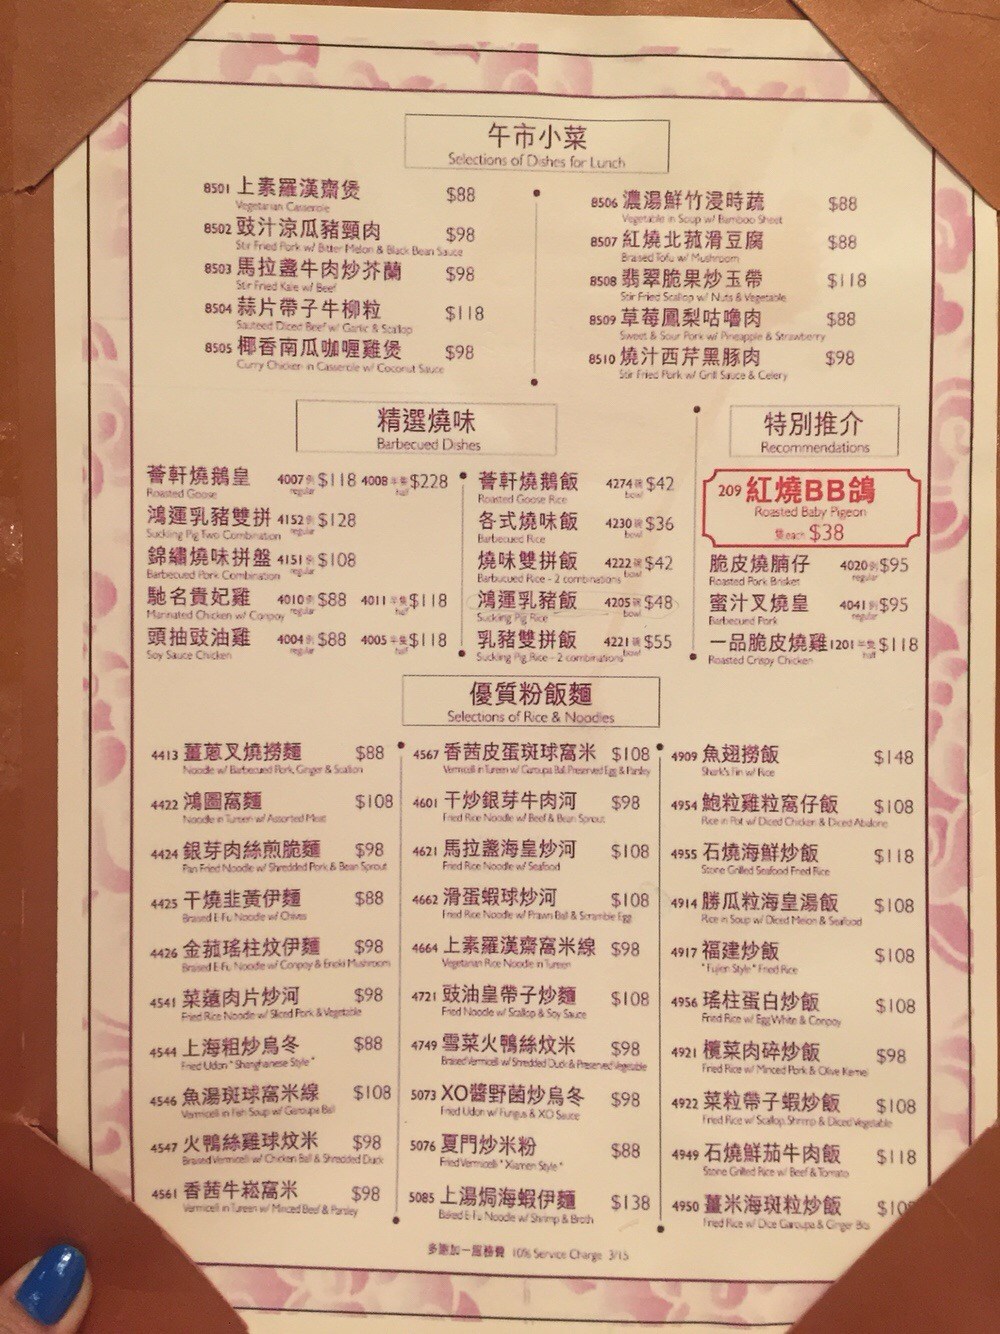 午市小菜
Selections of Dishes for Lunch
8501 上素羅漢齋煲 $88
Vegetarian Casserole
8502 豉汁涼瓜豬頸肉 $98
Stir Fried Pork w/ Bitter Melon & Black Bean Sauce
8503 馬拉盞牛肉炒芥蘭 $98
Stir Fried Kale w/ Beef
8504 蒜片帶子牛柳粒 $118
Sauteed Diced Beef w/ Garlic & Scallop
8505 椰香南瓜咖喱雞煲 $98
Curry Chicken in Casserole w/ Coconut Sauce
8506 濃湯鮮竹浸時蔬 $88
Vegetable in Soup w/ Bamboo Sheet
8507 紅燒北菰滑豆腐 $88
Braised Tofu w/ Mushroom
8508 翡翠脆果炒玉帶 $118
Stir Fried Scallop w/ Nuts & Vegetable
8509 草莓鳳梨咕嚕肉 $88
Sweet & Sour Pork w/ Pineapple & Strawberry
8510 燒汁西芹黑豚肉 $98
Stir Fried Pork w/ Grill Sauce & Celery
精選燒味
Barbecued Dishes
薈軒燒鵝皇 4007 例 $118 4008 半隻 $228
Roasted Goose regular half
鴻運乳豬雙拼 4152 例 $128
Suckling Pig Two Combination regular
錦繡燒味拼盤 4151 例 $108
Barbecued Pork Combination regular
馳名貴妃雞 4010 例 $88 4011 半隻 $118
Marinated Chicken w/ Conpoy regular half
頭抽豉油雞 4004 例 $88 4005 半隻 $118
Soy Sauce Chicken regular half
薈軒燒鵝飯 4274 碗 $42
Roasted Goose Rice bowl
各式燒味飯 4230 碗 $36
Barbecued Rice bowl
燒味雙拼飯 4222 碗 $42
Barbucued Rice - 2 combinations bowl
鴻運乳豬飯 4205 碗 $48
Suckling Pig Rice bowl
乳豬雙拼飯 4221 碗 $55
Suckling Pig Rice - 2 combinations bowl
特別推介
Recommendations
209 紅燒BB鴿
Roasted Baby Pigeon
隻each $38
脆皮燒腩仔 4020 例 $95
Roasted Pork Brisket regular
蜜汁叉燒皇 4041 例 $95
Barbecued Pork regular
一品脆皮燒雞 1201 半隻 $118
Roasted Crispy Chicken half
優質粉飯麵
Selections of Rice & Noodles
4413 薑蔥叉燒撈麵 $88
Noodle w/ Barbecued Pork, Ginger & Scallion
4422 鴻圖窩麵 $108
Noodle in Tureen w/ Assorted Meat
4424 銀芽肉絲煎脆麵 $98
Pan Fried Noodle w/ Shredded Pork & Bean Sprout
4425 干燒韭黃伊麵 $88
Braised E-Fu Noodle w/ Chives
4426 金菰瑤柱炆伊麵 $98
Braised E-Fu Noodle w/ Conpoy & Enoki Mushroom
4541 菜薳肉片炒河 $98
Fried Rice Noodle w/ Sliced Pork & Vegetable
4544 上海粗炒烏冬 $88
Fried Udon "Shanghainese Style"
4546 魚湯斑球窩米線 $108
Vermicelli in Fish Soup w/ Garoupa Ball
4547 火鴨絲雞球炆米 $98
Braised Vermicelli w/ Chicken Ball & Shredded Duck
4561 香茜牛崧窩米 $98
Vermicelli in Tureen w/ Minced Beef & Parsley
4567 香茜皮蛋斑球窩米 $108
Vermicelli in Tureen w/ Garoupa Ball, Preserved Egg & Parsley
4601 干炒銀芽牛肉河 $98
Fried Rice Noodle w/ Beef & Bean Sprout
4621 馬拉盞海皇炒河 $108
Fried Rice Noodle w/ Seafood
4662 滑蛋蝦球炒河 $108
Fried Rice Noodle w/ Prawn Ball & Scramble Egg
4664 上素羅漢齋窩米線 $98
Vegetarian Rice Noodle in Tureen
4721 豉油皇帶子炒麵 $108
Fried Noodle w/ Scallop & Soy Sauce
4749 雪菜火鴨絲炆米 $98
Braised Vermicelli w/ Shredded Duck & Preserved Vegetable
5073 XO醬野菌炒烏冬 $98
Fried Udon w/ Fungus & XO Sauce
5076 夏門炒米粉 $88
Fried Vermicelli "Xiamen Style"
5085 上湯焗海蝦伊麵 $138
Baked E-Fu Noodle w/ Shrimp & Broth
4909 魚翅撈飯 $148
Shark's Fin w/ Rice
4954 鮑粒雞粒窩仔飯 $108
Rice in Pot w/ Diced Chicken & Diced Abalone
4955 石燒海鮮炒飯 $118
Stone Grilled Seafood Fried Rice
4914 勝瓜粒海皇湯飯 $108
Rice in Soup w/ Diced Melon & Seafood
4917 福建炒飯 $108
"Fujien Style" Fried Rice
4956 瑤柱蛋白炒飯 $108
Fried Rice w/ Egg White & Conpoy
4921 欖菜肉碎炒飯 $98
Fried Rice w/ Minced Pork & Olive Kernel
4922 菜粒帶子蝦炒飯 $108
Fried Rice w/ Scallop, Shrimp & Diced Vegetable
4949 石燒鮮茄牛肉飯 $118
Stone Grilled Rice w/ Beef & Tomato
4950 薑米海斑粒炒飯
Fried Rice w/ Dice Garoupa & Ginger Bits
多謝加一服務費 10% Service Charge 3/15